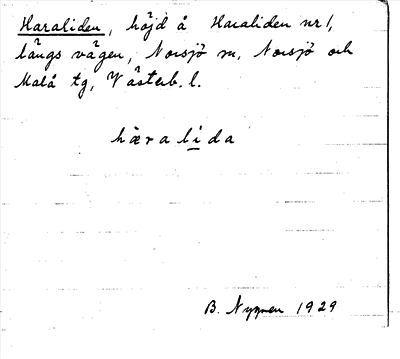 Haraliden, höjd å Haraliden nr 1,
längs vägen, Norsjö sn, Norsjö och
Malå tg, Västerb. l.
hæralida
B. Nygren 1929